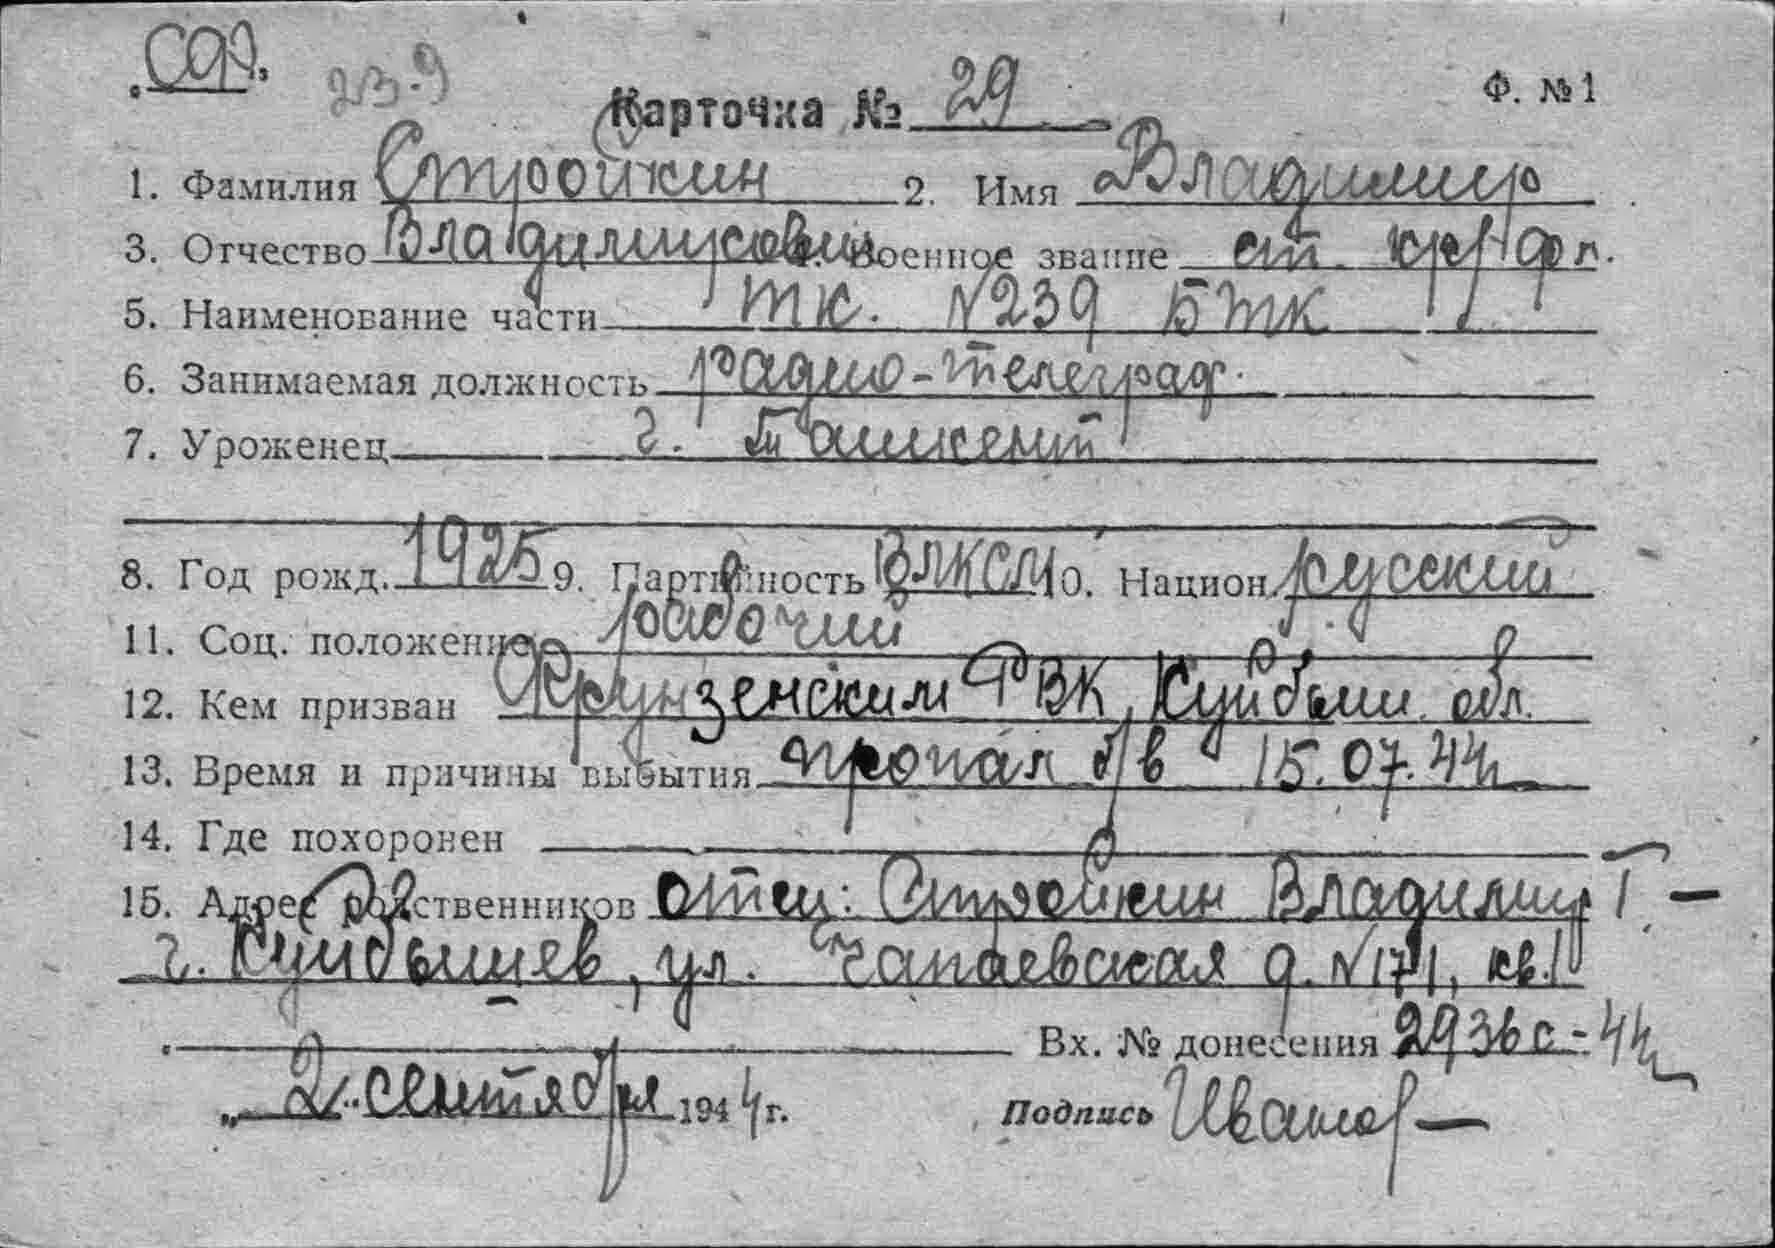 СФ.
23.9
Карточка № 29
Ф. № 1
1. Фамилия Стройкин 2. Имя Владимир
3. Отчество Владимирович 4. Военное звание ст. кр/фл.
5. Наименование части ТК. N239 БТК
6. Занимаемая должность радио-телеграф.
7. Уроженец г. Ташкент
8. Год рожд. 1925 9. Партийность ВЛКСМ 10. Национ. русский
11. Соц. положение рабочий
12. Кем призван Фрунзенским РВК, Куйбыш. обл.
13. Время и причины выбытия пропал б/в 15.07.44
14. Где похоронен
15. Адрес родственников отец: Стройкин Владимир Г. —
г. Куйбышев, ул. Чапаевская д. N171, кв.1
Вх. № донесения 2936с-44
„2" сентября 1944 г. Подпись Иванов